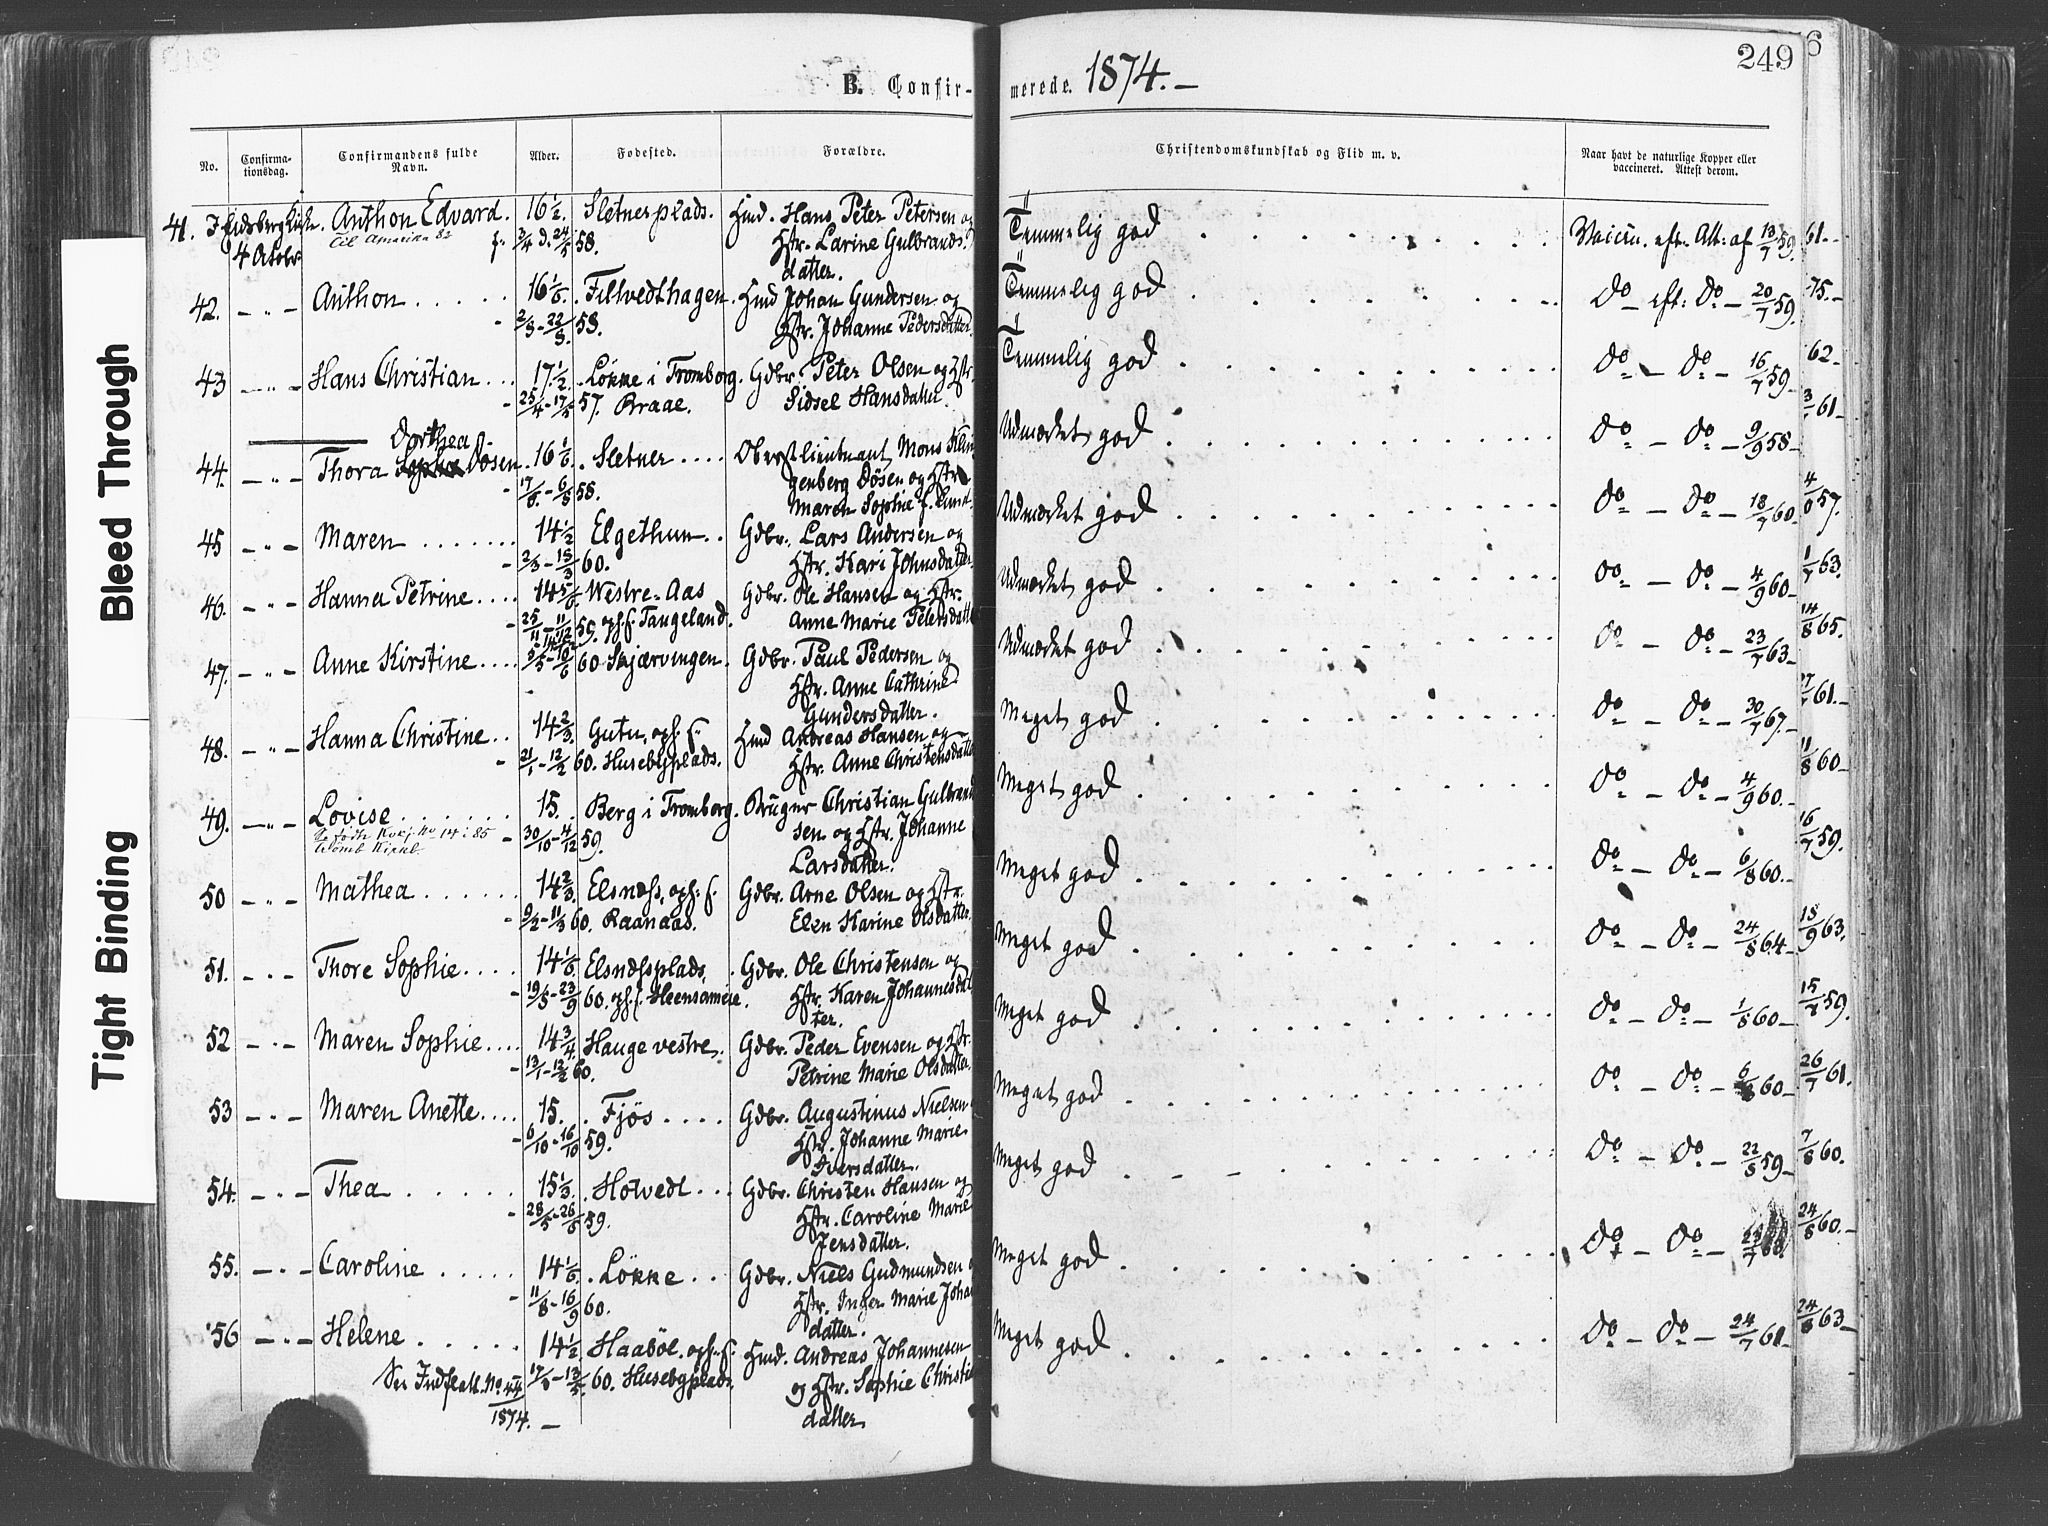 249
6
B. Confir-
merede. 1874.-
No.
Confirma-
tionsdag.
Confirmandens fulde
Navn.
Alder.
Fødested.
Forældre.
Christendomskundskab og Flid m. v.
Naar havt de naturlige Kopper eller
vaccineret. Attest derom.
Bleed Through
Tight Binding
41. I Eidsberg Kirke. Anthon Edvard. 16 1/2. Sletner plads. Hmd. Hans Peter Petersen og Temmelig god Vaccin. eft. Att: af 13/7 59. 61.-
4 Octobr til Amerika 82 f. 3/4 d. 24/5 58. Hstr. Larine Gulbrands-
datter.
42. - " - Anthon 16 1/6. Filtvedthagen. Hmd Johan Gundersen og Temmelig god Do - eft: Do - 20/7 59. 75.-
58. Hstr. Johanne Pedersdatter.
43 - " - Hans Christian 17 1/2. Løkke i Tromborg. Gdbr. Peter Olsen og Hstr. Temmelig god Do - Do - 16/7 59. 62-
25/4 - 17/5 57. Braae. Sidsel Hansdatter
Dorthea
44. - " - Thora Døsen. 16 1/6. Sletner Oberstlieutnant Mons Klin Udmærket god Do - Do - 9/9 58. 61-
17/6 - 6/8 58. genberg Døsen og Hstr
Maren Sophie f. Lund
45 - " - Maren 14 1/2 Elgethun Gdbr. Lars Andersen og Udmærket god Do - Do - 18/7 60. 57.
2/3 - 18/3 60. Hstr. Kari Johnsdatter
46. - " - Hanna Petrine 14 5/6. Westre-Aas Gdbr. Ole Hansen og Hstr. Udmærket god Do - Do - 4/9 60. 1/7 63.
25/11 - 11/12 59. oph. f. Taugeland. Anne Marie Petersdatter
47. - " - Anne Kirstine 60 Skjærvingen. Gdbr. Paul Pedersen og Udmærket god Do - Do - 23/7 63. 14/8 65.
Hstr. Anne Cathrine
Gundersdatter.
48. - " - Hanna Christine 14 2/3. Gutu, oph. f. Hmd Andreas Hansen og Meget god Do - Do - 30/7 67. 61.-
21/1 - 12/2 60. Husebyplads. Hstr. Anne Christensdatter
49. - " - Lovise 15. Berg i Tromborg. Bruger Christian Gulbrand Meget god Do - Do - 4/9 60. 11/8 60-
No 14: 85 30/10 - 4/12 59. sen og Hstr. Johanne
Larsdatter.
50 - " - Mathea 14 2/3. Elsnæss, oph: f. Gdbr. Arne Olsen og Hstr. Meget god Do - Do - 6/8 60. 16/7 59.
9/2 - 11/3 60. Raanaas. Elen Karine Olsdatter.
51. - " - Thore Sophie 14 1/6 Elsnæssplads, Gdbr. Ole Christensen og Meget god Do - Do - 24/8 64. 18/9 63.
19/8 - 23/9 60. oph. f. Heensameie. Hstr. Karen Johannesdat
ter.
52 - " - Maren Sophie 14 3/4 Hauge vestre. Gdbr. Peder Evensen og Hstr. Meget god Do - Do - 1/8 60- 15/7 59.
13/1 - 12/2 60. Petrine Marie Olsdatter.
53 - " - Maren Anette 15. Fjøs Gdbr. Augustinus Nielsen Meget god Do - Do - 60- 26/7 61.
6/10 - 16/10 59. Hstr. Johanne Marie
Iversdatter.
54. - " - Thea 15 1/3. Hotvedt Gdbr. Christen Hansen og Meget god Do - Do - 22/8 59- 7/8 60.
28/5 - 26/6 59. Hstr. Caroline Marie
Jensdatter.
55. - " - Caroline 14 1/6. Løkke Gdbr. Niels Gudmundsen Meget god Do - Do - 24/8 60.-
11/8 - 16/9 60. Hstr. Inger Marie Johan
datter.
56 - " - Helene 14 1/2 Haabøl. oph. f. Hmd. Andreas Johannesen Meget god Do - Do - 24/7 61- 24/8 63-
See Indflatt. No 44 60. Husebyplads. og Hstr. Sophie Christi
1874. datter